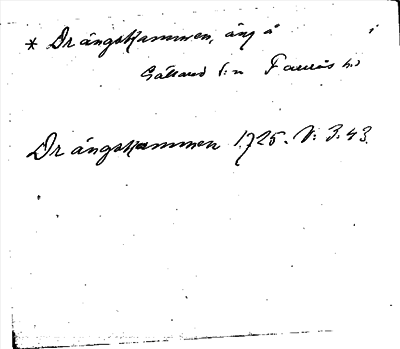 * Drängskammen, äng å i
Gällared s:n Faurås hd
Drängskammen 1725. V: 3: 43.